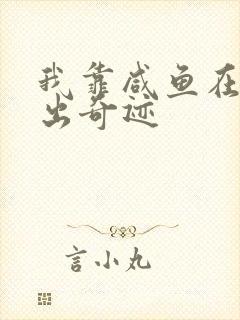 我靠咸鱼在
出奇迹
言小丸